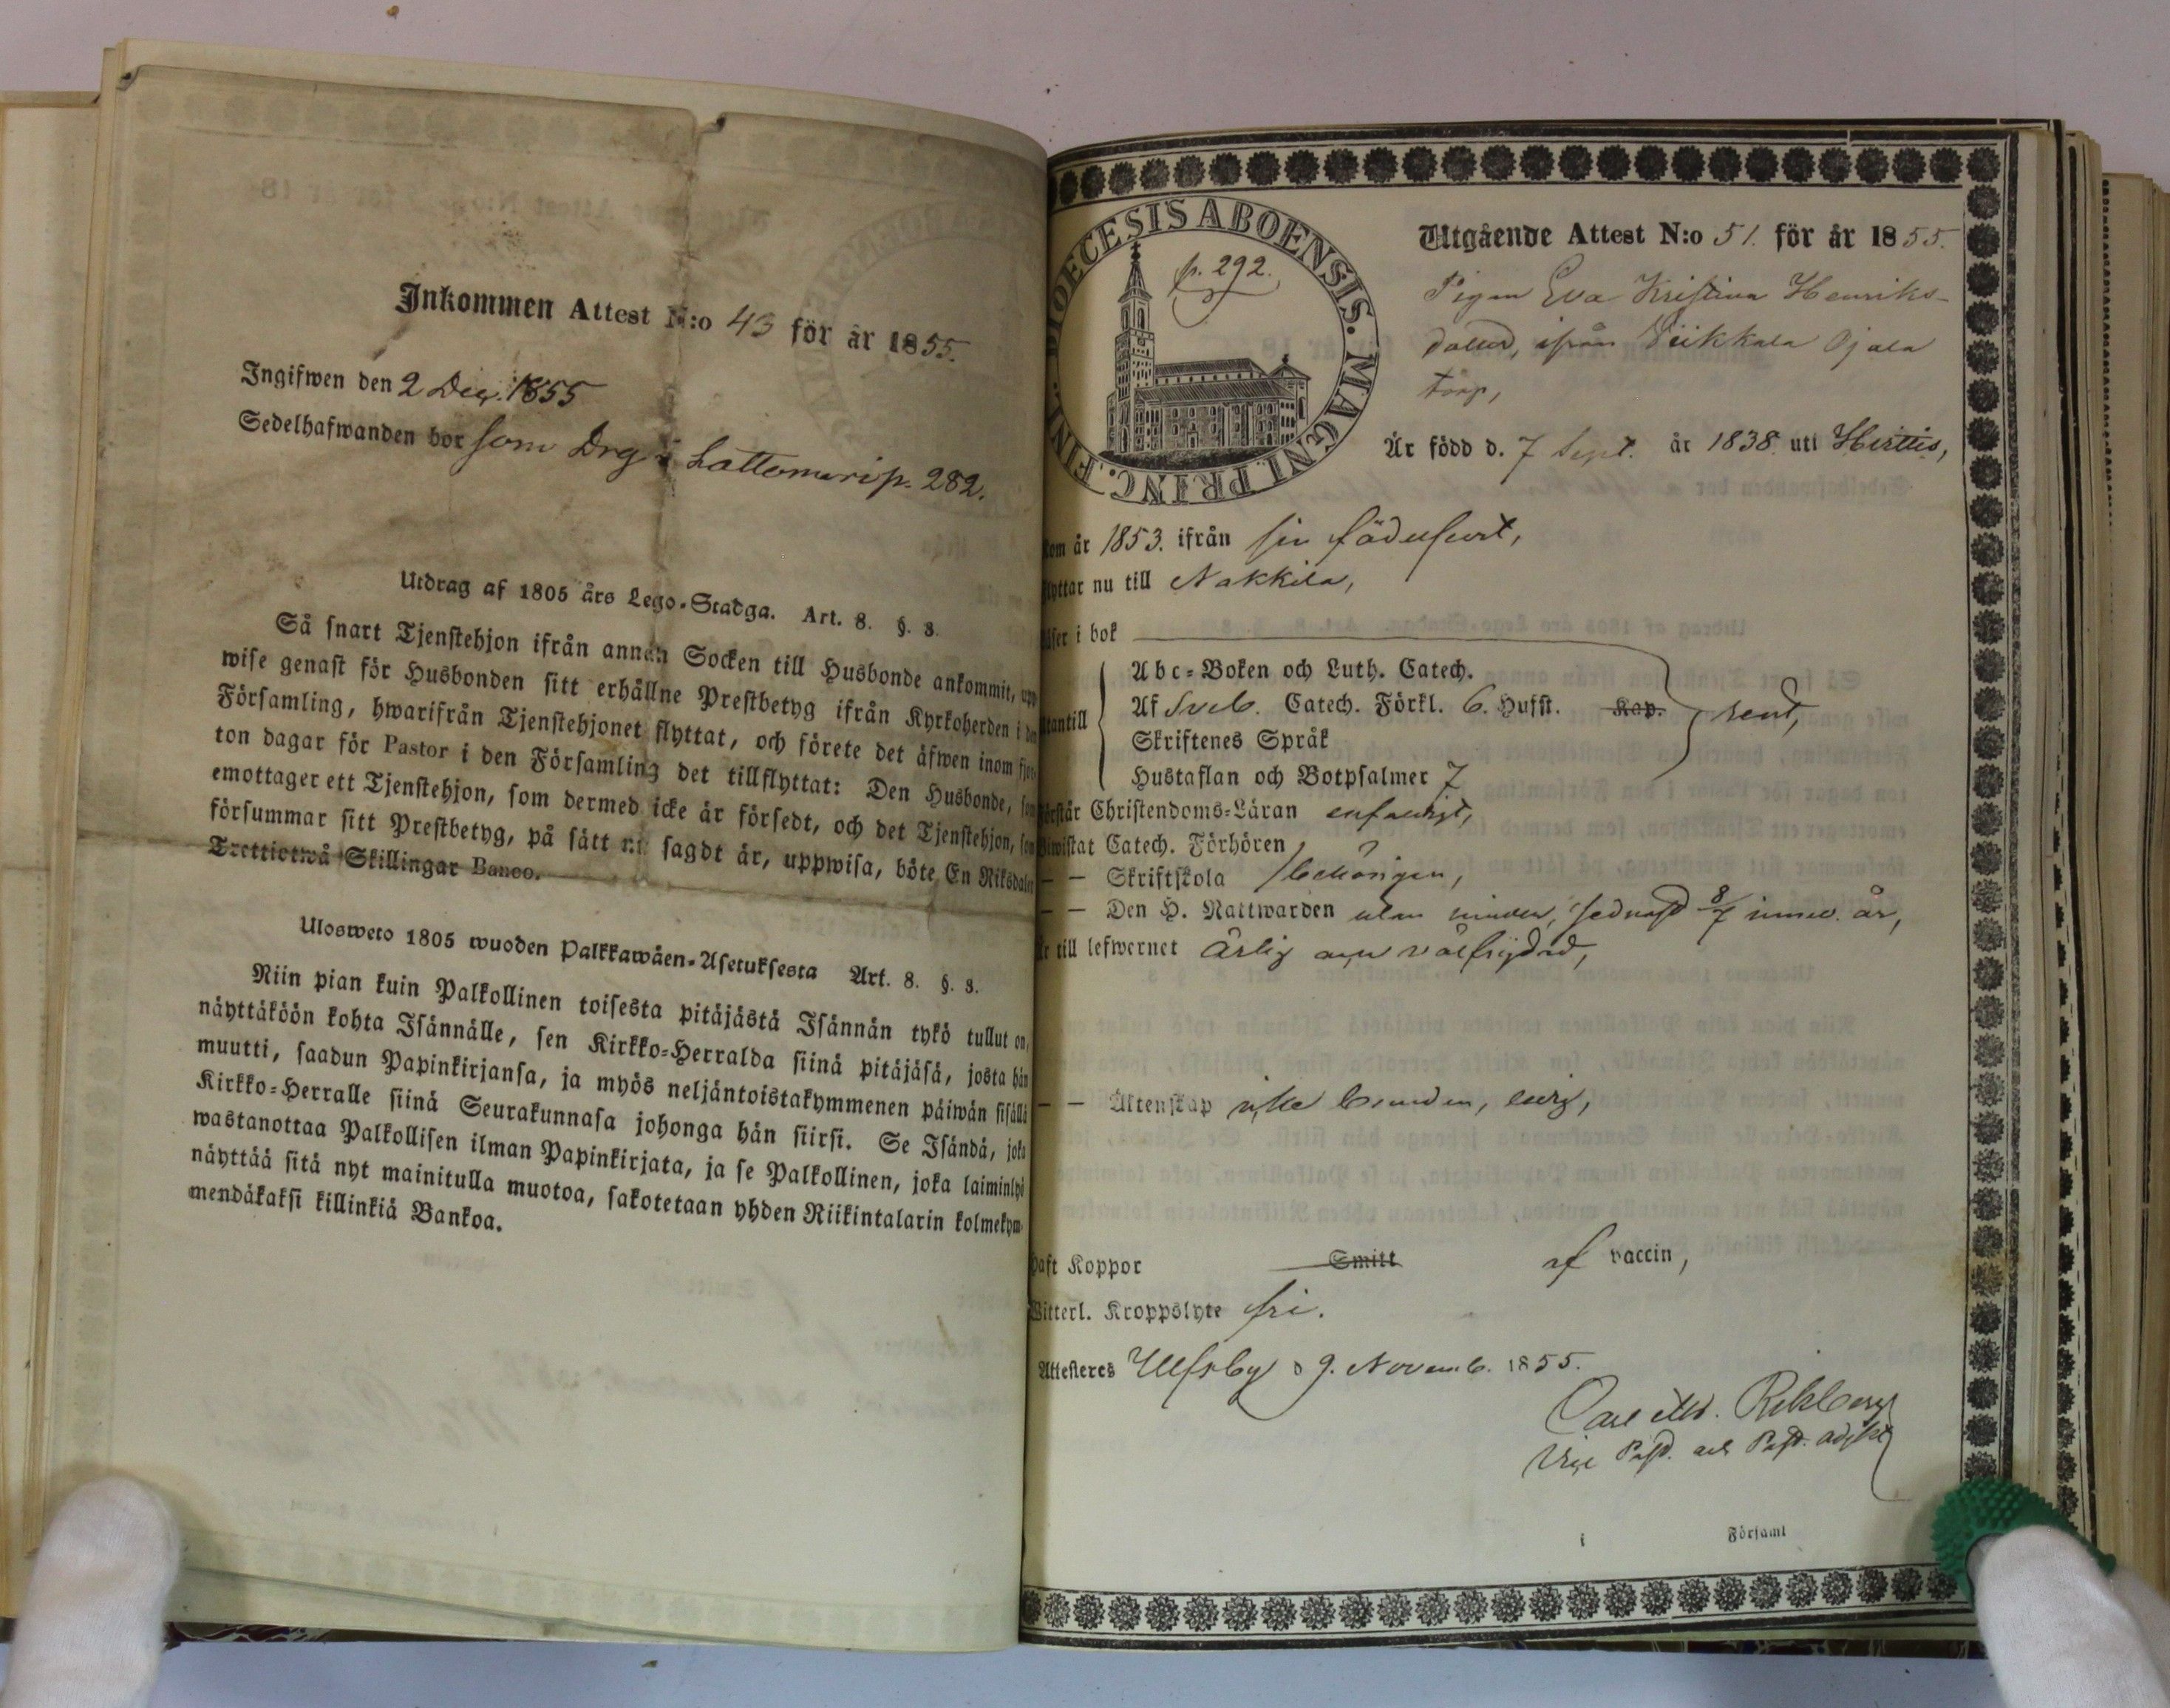 Inkommen Attest N:o 43 för år 1855.
Ingifwen den 2 Dec. 1855
Sedelhafwanden bor som Drg i Lattomeri p. 282.
Utdrag af 1805 års Lego-Stadga. Art. 8. §. 8.
Så snart Tjenstehjon ifrån annan Socken till Husbonde ankommit, upp
wise genast för Husbonden sitt erhållne Prestbetyg ifrån Kyrkoherden i den
Församling, hwarifrån Tjenstehjonet flyttat, och förete det äfwen inom fjor-
ton dagar för Pastor i den Församling det tillflyttat: Den Husbonde, som
emottager ett Tjenstehjon, som dermed icke är försedt, och det Tjenstehjon, som
försummar sitt Prestbetyg, på sätt nu sagdt är, uppwisa, böte En Riksdaler
Trettiotwå Skillingar Banco.
Ulosweto 1805 wuoden Palkkawäen-Asetuksesta Art. 8. §. 8.
Niin pian kuin Palkollinen toisesta pitäjästä Isännän tykö tullut on,
näyttäköön kohta Isännälle, sen Kirkko-Herralda siinä pitäjäsä, josta hän
muutti, saadun Papinkirjansa, ja myös neljäntoistakymmenen päiwän sisällä
Kirkko-Herralle siinä Seurakunnasa johonga hän siirsi. Se Isändä, joka
wastanottaa Palkollisen ilman Papinkirjata, ja se Palkollinen, joka laiminlyö
näyttää sitä nyt mainitulla muotoa, sakotetaan yhden Riikintalarin kolmekym-
mendäkaksi killinkiä Bankoa.
DIOECESIS ABOENSIS. MAGNI. PRINC. FINL.
p. 292.
Utgående Attest N:o 51. för år 1855.
Pigan Eva Kristina Henriks-
dotter, ifrån Viikkala Ojala
torp,
Är född d. 7 Sept. år 1838. uti Hvittis,
kom år 1853. ifrån sin födelseort,
flyttar nu till Nakkila,
läser i bok
utantill
Abc-Boken och Luth. Catech.
Af Sveb. Catech. Förkl. 6. Hufst. Kap. rent,
Skriftenes Språk
Hustaflan och Botpsalmer 7
förstår Christendoms-Läran enfaldigt,
biwistat Catech. Förhören
— — Skriftskola behörigen,
— — Den H. Nattwarden utan hinder, sednast 8/7 innev. år,
Är till lefwernet ärlig och välfrejdad,
— — Äktenskap icke bunden, ledig,
haft Koppor Smitt af vaccin,
Witterl. Kroppslyte fri.
Attesteres Ulfsby d 9. Novemb. 1855.
Carl Ed. Rehberg
Vice Past. och Past. adjkt
i Församl